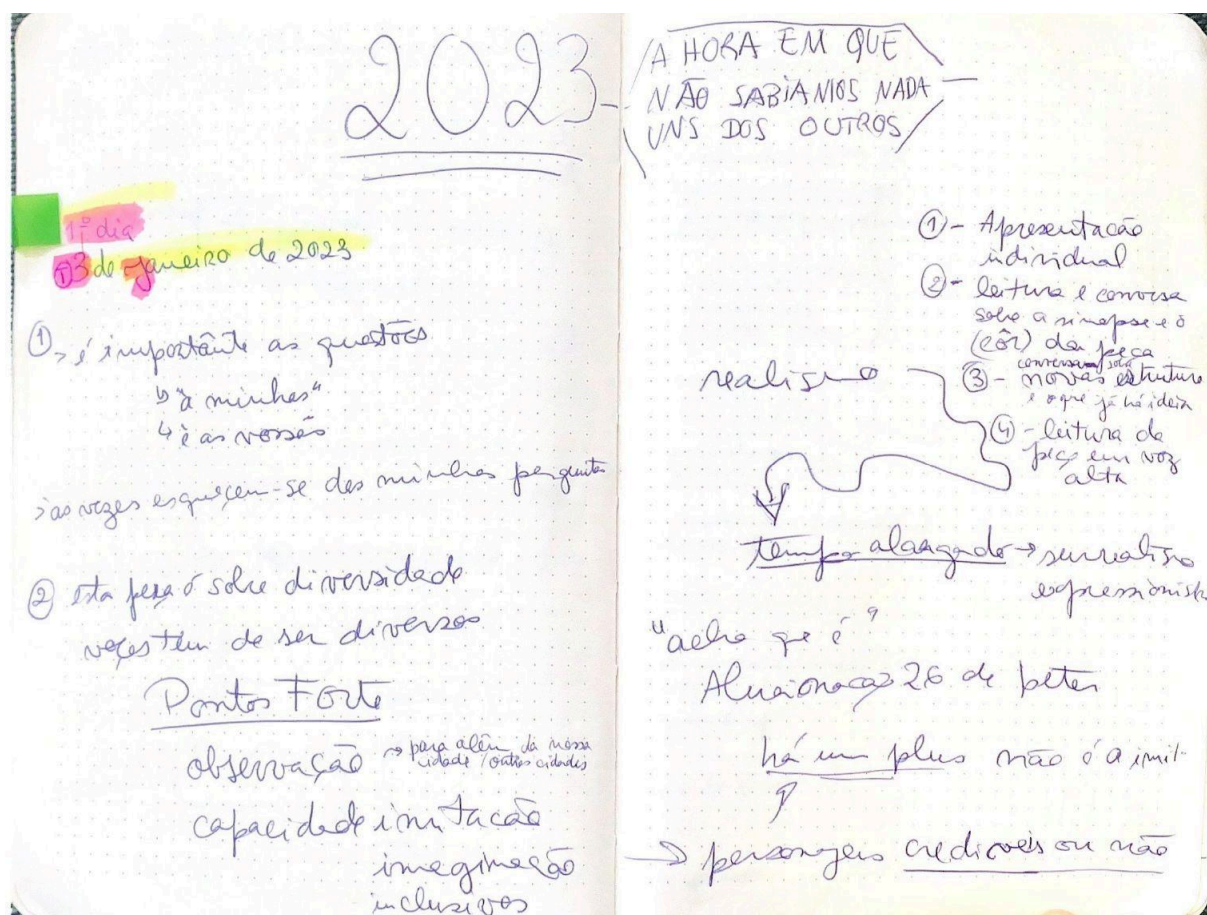 2023
1º dia
3 de janeiro de 2023
① > é importante as questões
↳ "a minhas"
↳ e as vossas
> às vezes esqueçem-se das minhas perguntas
② Esta peça é sobre diversidade
voçes têm de ser diversos
Pontos Forte
observação → para além da nossa
cidade / outras cidades
capacidade imitação
imaginação
inclusivos
A HORA EM QUE
NÃO SABIAMOS NADA
UNS DOS OUTROS
① - Apresentação
individual
② - leitura e conversa
sobre a sinopse e o
(côr) da peça
conversa sobre
③ - novas estrutura
e o que já há ideia
④ - leitura da
peça em voz
alta
realismo
tempo alargado → surrealismo
expressionista
"acho que é"
26 de
há um plus não é a imit-
→ personagens credíveis ou não